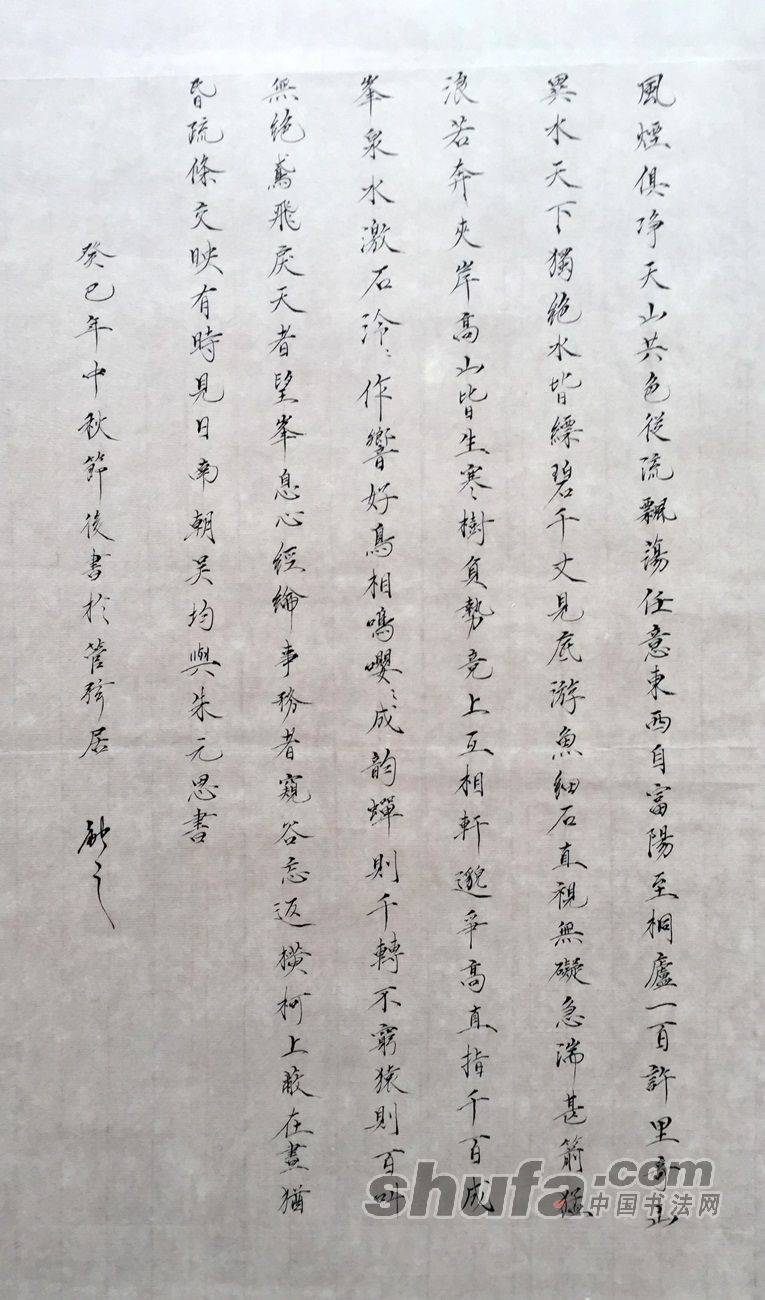 風煙俱净天山共色從流飄蕩任意東西自富陽至桐廬一百許里奇山
異水天下獨絶水皆縹碧千丈見底游魚細石直視無礙急湍甚箭猛
浪若奔夾岸高山皆生寒樹負勢競上互相軒邈爭高直指千百成
峯泉水激石泠〻作響好鳥相鳴嚶〻成韵蟬則千轉不窮猿則百叫
無絶鳶飛戾天者望峯息心經綸事務者窺谷忘返橫柯上蔽在晝猶
昏疏條交映有時見日南朝吴均與朱元思書
癸巳年中秋節後書於管
居
shufa.com
中国书法网